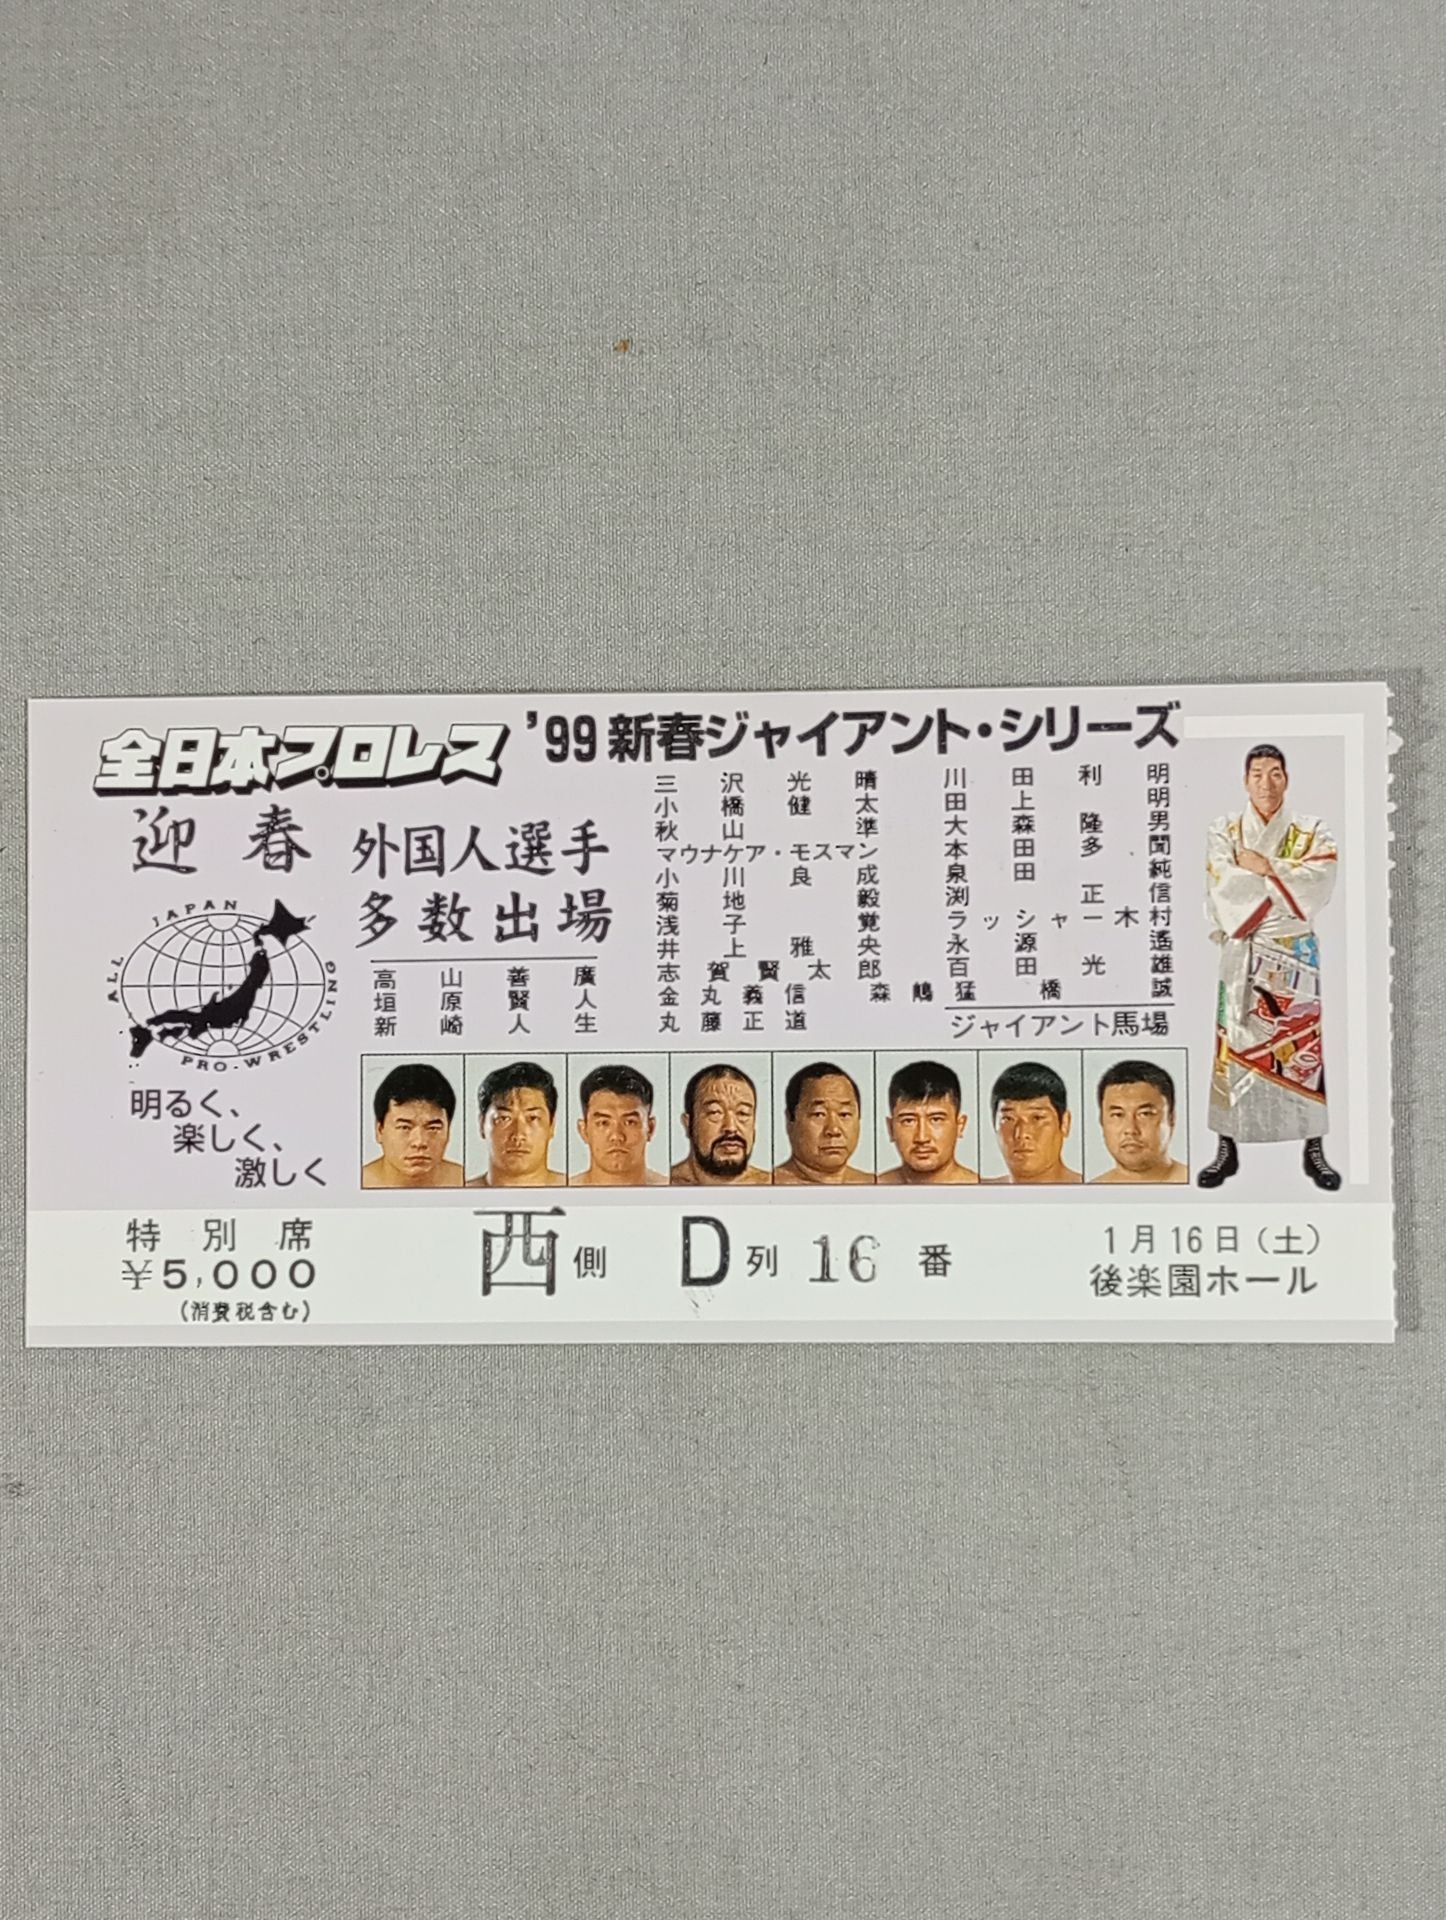 全日本プロレス '99新春ジャイアント・シリーズ
迎春
外国人選手
多数出場
ALL JAPAN PRO-WRESTLING
明るく、
楽しく、
激しく
高山善廣
垣原賢人
新崎人生
三沢光晴
小橋健太
秋山準
マウナケア・モスマン
小川良成
菊地毅
浅子覚
井上雅央
志賀賢太郎
金丸義信
丸藤正道
森嶋猛
川田利明
田上明
大森隆男
本田多聞
泉田純
渕正信
ラッシャー木村
永源遙
百田光雄
橋誠
ジャイアント馬場
特別席
¥5,000
(消費税含む)
西側 D列 16番
1月16日(土)
後楽園ホール